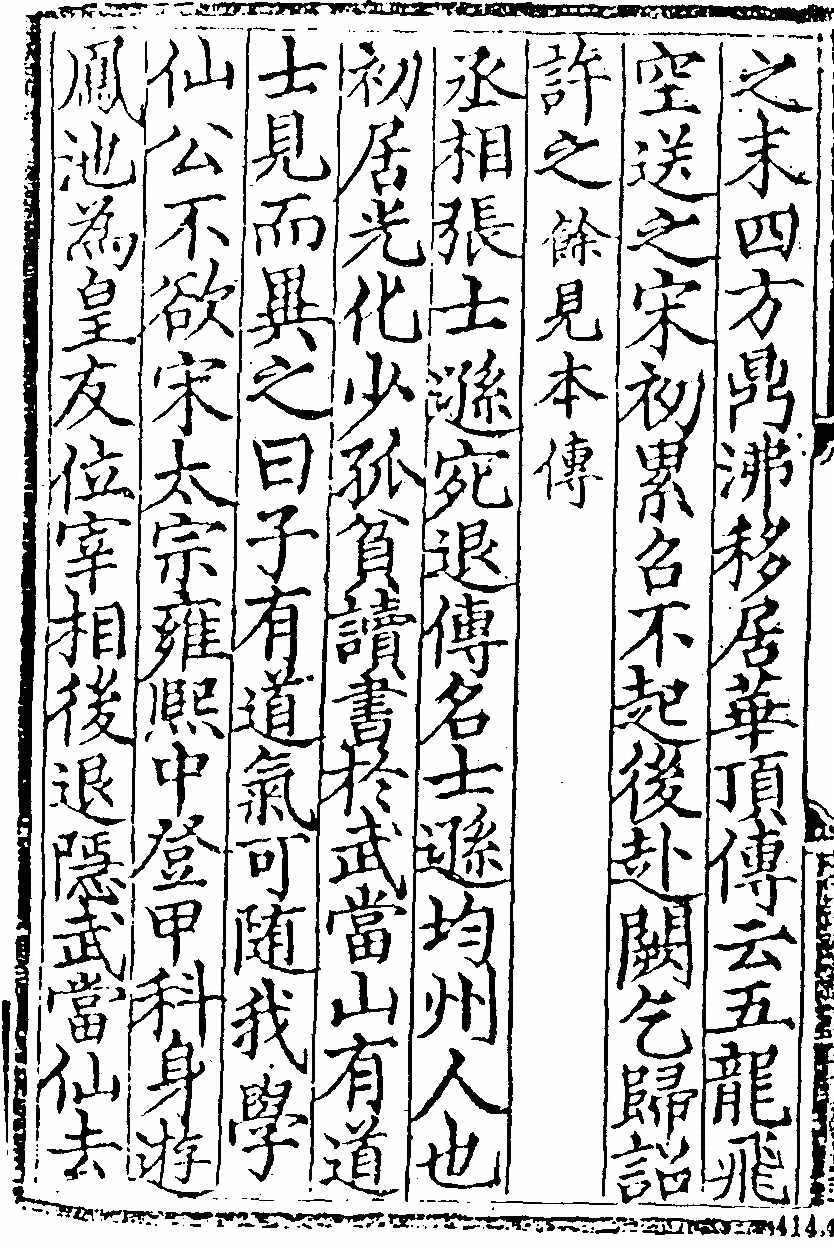 之末四方鼎沸移居華頂傳云五龍飛
空送之宋初累召不起後赴闕乞歸詔
許之餘見本傳
丞相張士遜宛退傳名士遜均州人也
初居光化少孤貧讀書於武當山有道
士見而異之曰子有道氣可隨我學
仙公不欲宋太宗雍熙中登甲科身遊
鳳池為皇友位宰相後退隱武當仙去
414.4